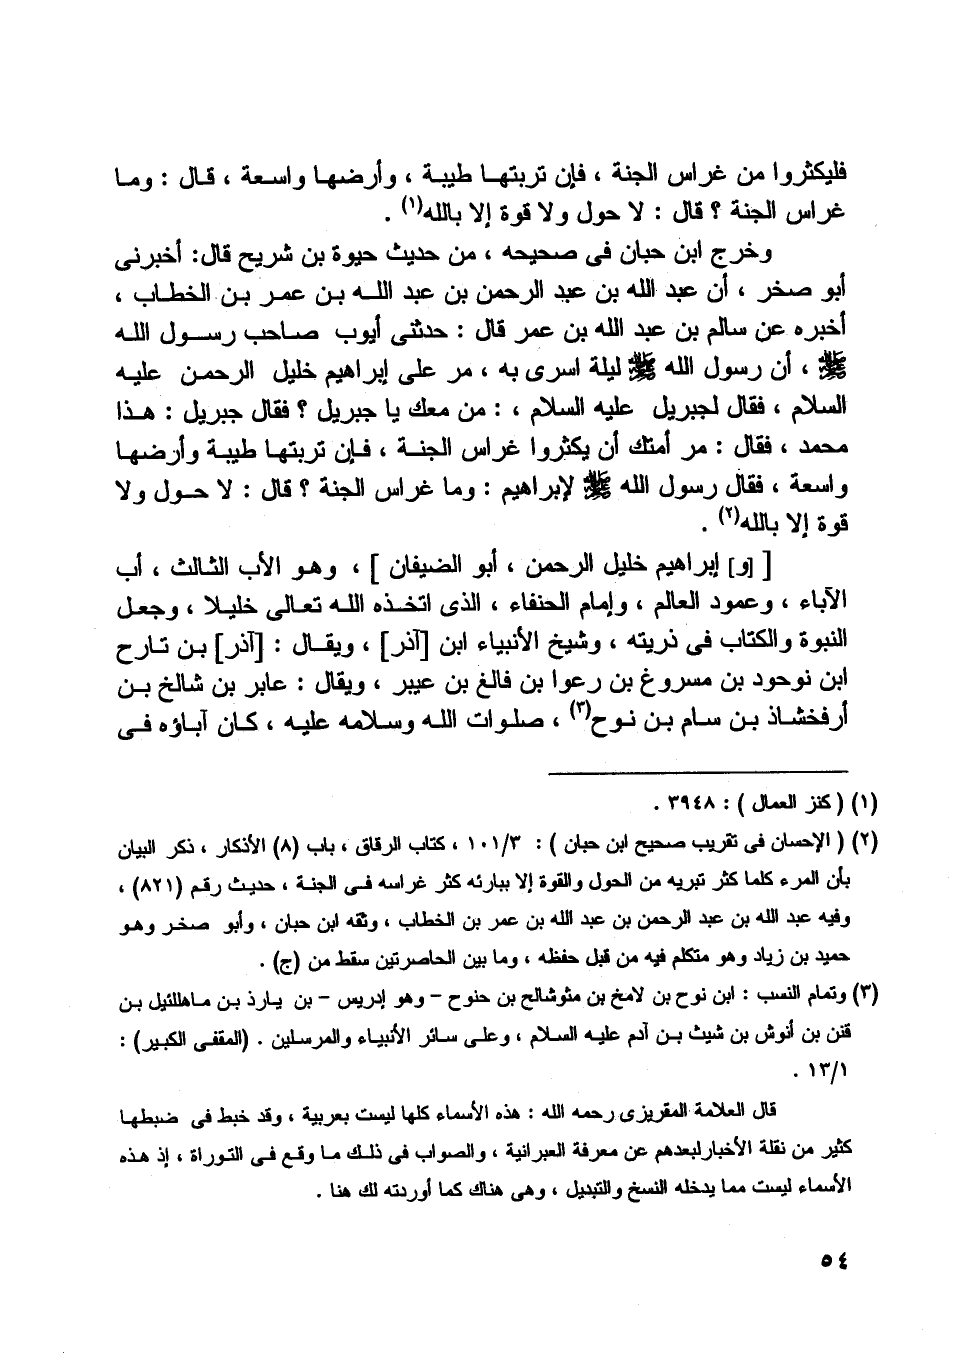 فليكثروا من غراس الجنة ، فإن تربتها طيبة ، وأرضها واسعة ، قال : وما
غراس الجنة ؟ قال : لا حول ولا قوة إلا بالله(١) .
وخرج ابن حبان فى صحيحه ، من حديث حيوة بن شريح قال: أخبرنى
أبو صخر ، أن عبد الله بن عبد الرحمن بن عبد الله بن عمر بن الخطاب ،
أخبره عن سالم بن عبد الله بن عمر قال : حدثنى أيوب صاحب رسول الله
ﷺ ، أن رسول الله ﷺ ليلة اسرى به ، مر على إبراهيم خليل الرحمن عليه
السلام ، فقال لجبريل عليه السلام ، : من معك يا جبريل ؟ فقال جبريل : هذا
محمد ، فقال : مر أمتك أن يكثروا غراس الجنة ، فإن تربتها طيبة وأرضها
واسعة ، فقال رسول الله ﷺ لإبراهيم : وما غراس الجنة ؟ قال : لا حول ولا
قوة إلا بالله(٢) .
[ [و] إبراهيم خليل الرحمن ، أبو الضيفان ] ، وهو الأب الثالث ، أب
الآباء ، وعمود العالم ، وإمام الحنفاء ، الذى اتخذه الله تعالى خليلا ، وجعل
النبوة والكتاب فى ذريته ، وشيخ الأنبياء ابن [آذر] ، ويقال : [آذر] بن تارح
ابن نوحود بن مسروغ بن رعوا بن فالغ بن عيبر ، ويقال : عابر بن شالخ بن
أرفخشاذ بن سام بن نوح(٣) ، صلوات الله وسلامه عليه ، كان آباؤه فى
(١) ( كنز العمال ) : ٣٩٤٨ .
(٢) ( الإحسان فى تقريب صحيح ابن حبان ) : ١٠١/٣ ، كتاب الرقاق ، باب (٨) الأذكار ، ذكر البيان
بأن المرء كلما كثر تبريه من الحول والقوة إلا ببارئه كثر غراسه فى الجنة ، حديث رقم (٨٢١) ،
وفيه عبد الله بن عبد الرحمن بن عبد الله بن عمر بن الخطاب ، وثقه ابن حبان ، وأبو صخر وهو
حميد بن زياد وهو متكلم فيه من قبل حفظه ، وما بين الحاصرتين سقط من (ج) .
(٣) وتمام النسب : ابن نوح بن لامخ بن مثوشالح بن حنوح – وهو إدريس – بن يارذ بن ماهللئيل بن
قنن بن أنوش بن شيث بن آدم عليه السلام ، وعلى سائر الأنبياء والمرسلين . (المقفى الكبير) :
١٣/١ .
قال العلامة المقريزى رحمه الله : هذه الأسماء كلها ليست بعربية ، وقد خبط فى ضبطها
كثير من نقلة الأخبارلبعدهم عن معرفة العبرانية ، والصواب فى ذلك ما وقع فى التوراة ، إذ هذه
الأسماء ليست مما يدخله النسخ والتبديل ، وهى هناك كما أوردته لك هنا .
٥٤